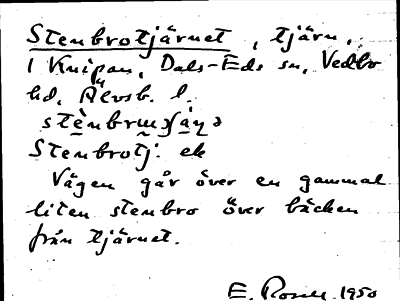 Stenbrotjärnet, tjärn,
i Knipan, Dals-Eds sn, Vedbo
hd, Älvsb. l.
Stenbrotj. ek
Vägen går över en gammal
liten stenbro över bäcken
från tjärnet.
E. 1950